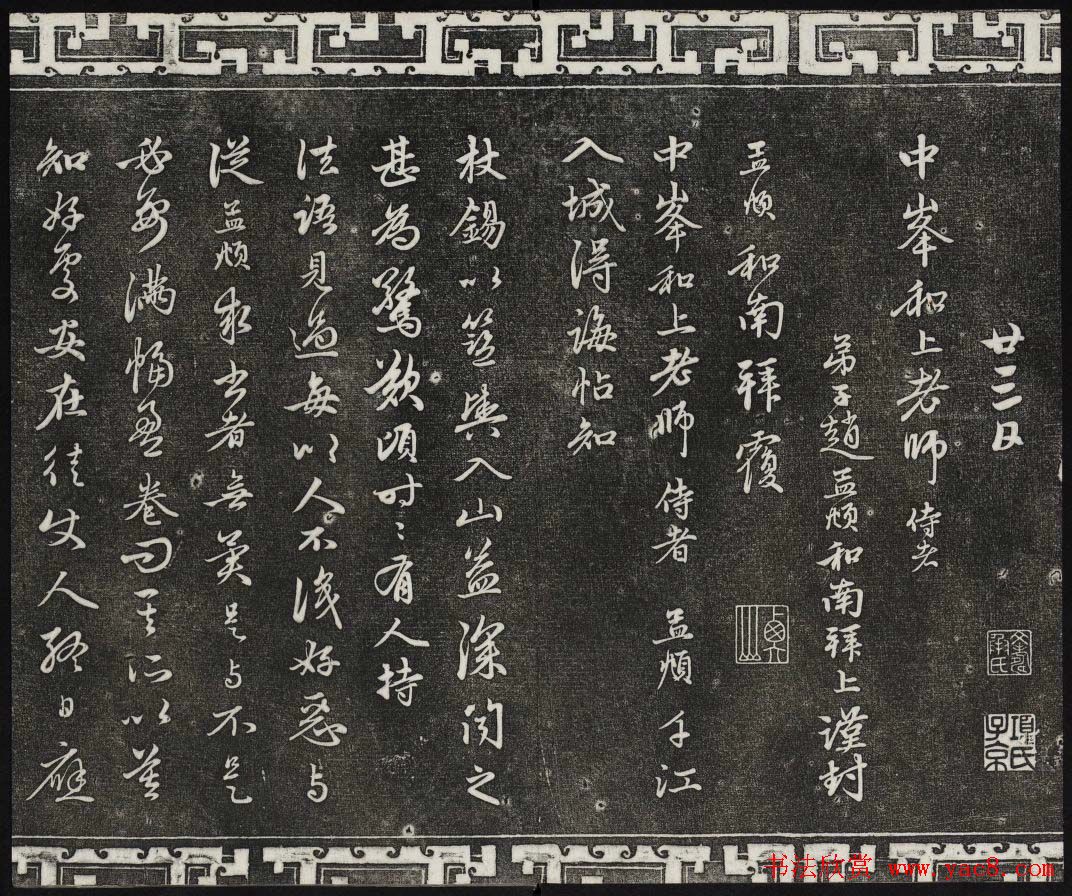 廿三日
中峯和上老師 侍者
弟子趙孟頫和南拜上謹封
孟頫和南拜覆
中峯和上老師侍者 孟頫 千江
入城得誨帖知
杖錫以籃輿入山益深聞之
甚為驚歎頃時〻有人持
法語見過每以人不識好惡与
從孟頫求書者無異是与不是
必要滿幅盈卷問其所以莫
知好處安在徒使人終日應
項氏子京
书法欣赏 www.yac8.com